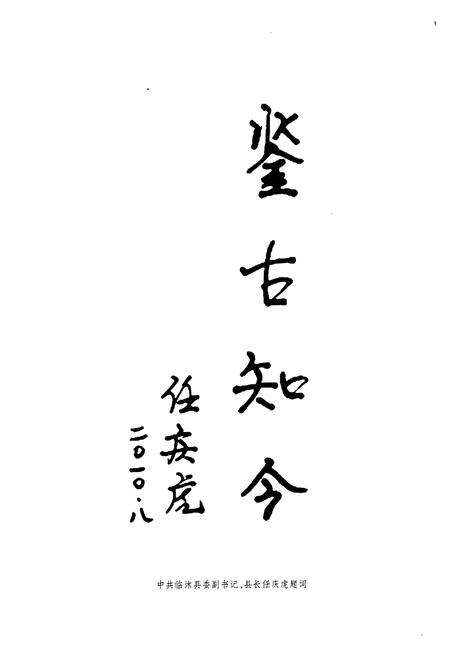 鉴古知今
任庆虎
二〇一〇.八
中共临沭县委副书记、县长任庆虎题词